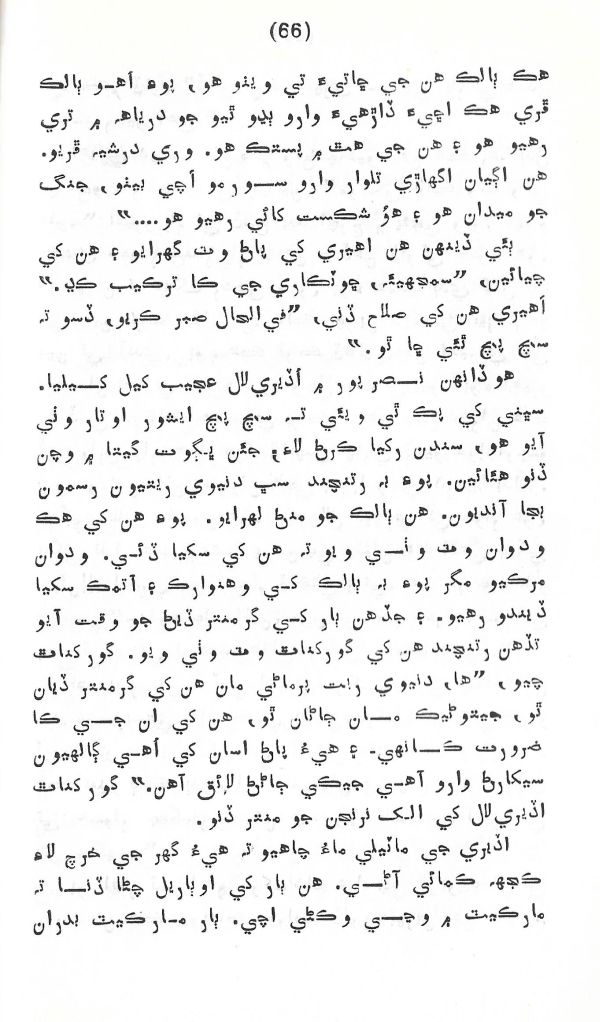 (66)
هڪ ٻالڪ هن جي ڇاتيءَ تي ويٺو هو، پوءِ اهو ٻالڪ
ڦري هڪ اڇيءَ ڏاڙهيءَ وارو ٻڍو ٿيو جو درياهه ۾ تري
رهيو هو ۽ هن جي هٿ ۾ پستڪ هو. وري درشيہ ڦريو.
هن اڳيان اگهاڙي تلوار وارو سورمو اچي بيٺو، جنگ
جو ميدان هو ۽ هوُ شڪست کائي رهيو هو....“
ٻئي ڏينهن هن اهيري کي پاڻ وٽ گهرايو ۽ هن کي
چيائين، ”سمجهيئہ، ڇوٽڪاري جي ڪا ترڪيب ڪڍ.“
اهيري هن کي صلاح ڏني، ”في الحال صبر ڪريو، ڏسو تہ
سچ پچ ٿئي ڇا ٿو.“
هوڏانهن نصرپور ۾ اڏيري لال عجيب کيل کيليا.
سڀني کي پڪ ٿي ويئي تہ سچ پچ ايشور اوتار وٺي
آيو هو، سندن رکيا ڪرڻ لاءِ، جئن ڀڳوت گيتا ۾ وچن
ڏنو هئائين. پوءِ بہ رتنچند سڀ دنيوي ريتيون رسمون
بجا آنديون. هن ٻالڪ جو منڊ لهرايو. پوءِ هن کي هڪ
ودوان وٽ وٺي ويو تہ هن کي سکيا ڏئي. ودوان
مرڪيو مگر پوءِ بہ ٻالڪ کي وهنوارڪ ۽ آتمڪ سکيا
ڏيندو رهيو. ۽ جڏهن ٻار کي گرمنتر ڏيڻ جو وقت آيو
تڏهن رتنچند هن کي گورکناٿ وٽ وٺي ويو. گورکناٿ
چيو، ”ها، دنيوي ريت پرماڻي مان هن کي گرمنتر ڏيان
ٿو، جيتوڻيڪ مان ڄاڻان ٿو، هن کي ان جي ڪا
ضرورت ڪانهي. ۽ هيءُ پاڻ اسان کي اهي ڳالهيون
سيکارڻ وارو آهي جيڪي ڄاڻڻ لائق آهن.“ گورکناٿ
اڏيري لال کي الک نرنجن جو منتر ڏنو.
اڏيري جي ماٽيلي ماءُ چاهيو تہ هيءُ گهر جي خرچ لاءِ
ڪجهہ ڪمائي آڻي. هن ٻار کي اوٻاريل چڻا ڏنا تہ
مارڪيٽ ۾ وڃي وڪڻي اچي. ٻار مارڪيٽ بدران